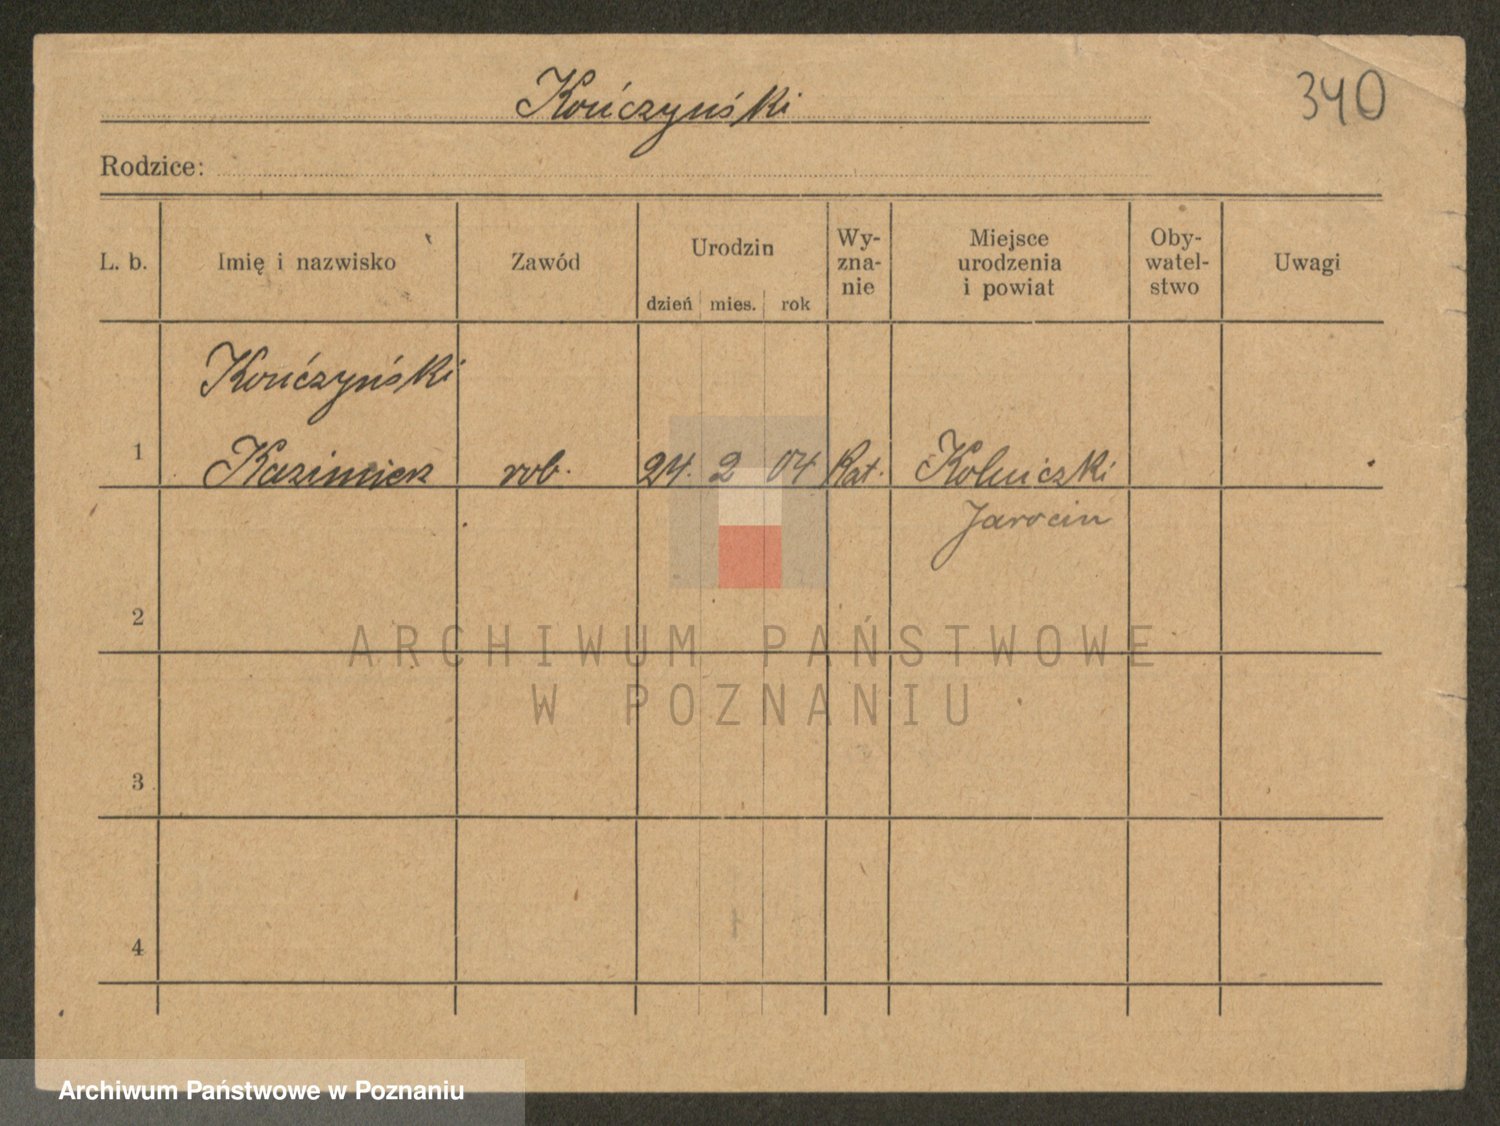 Kończyński
340
Rodzice:
L. b.
Imię i nazwisko
Zawód
Urodzin
dzień
mies.
rok
Wy-
zna-
nie
Miejsce
urodzenia
i powiat
Oby-
watel-
stwo
Uwagi
Kończyński
1
Kazimierz
rob.
24.
2
04
Kat.
Kolniczki
Jarocin
2
ARCHIWUM PAŃSTWOWE
W POZNANIU
3
4
Archiwum Państwowe w Poznaniu